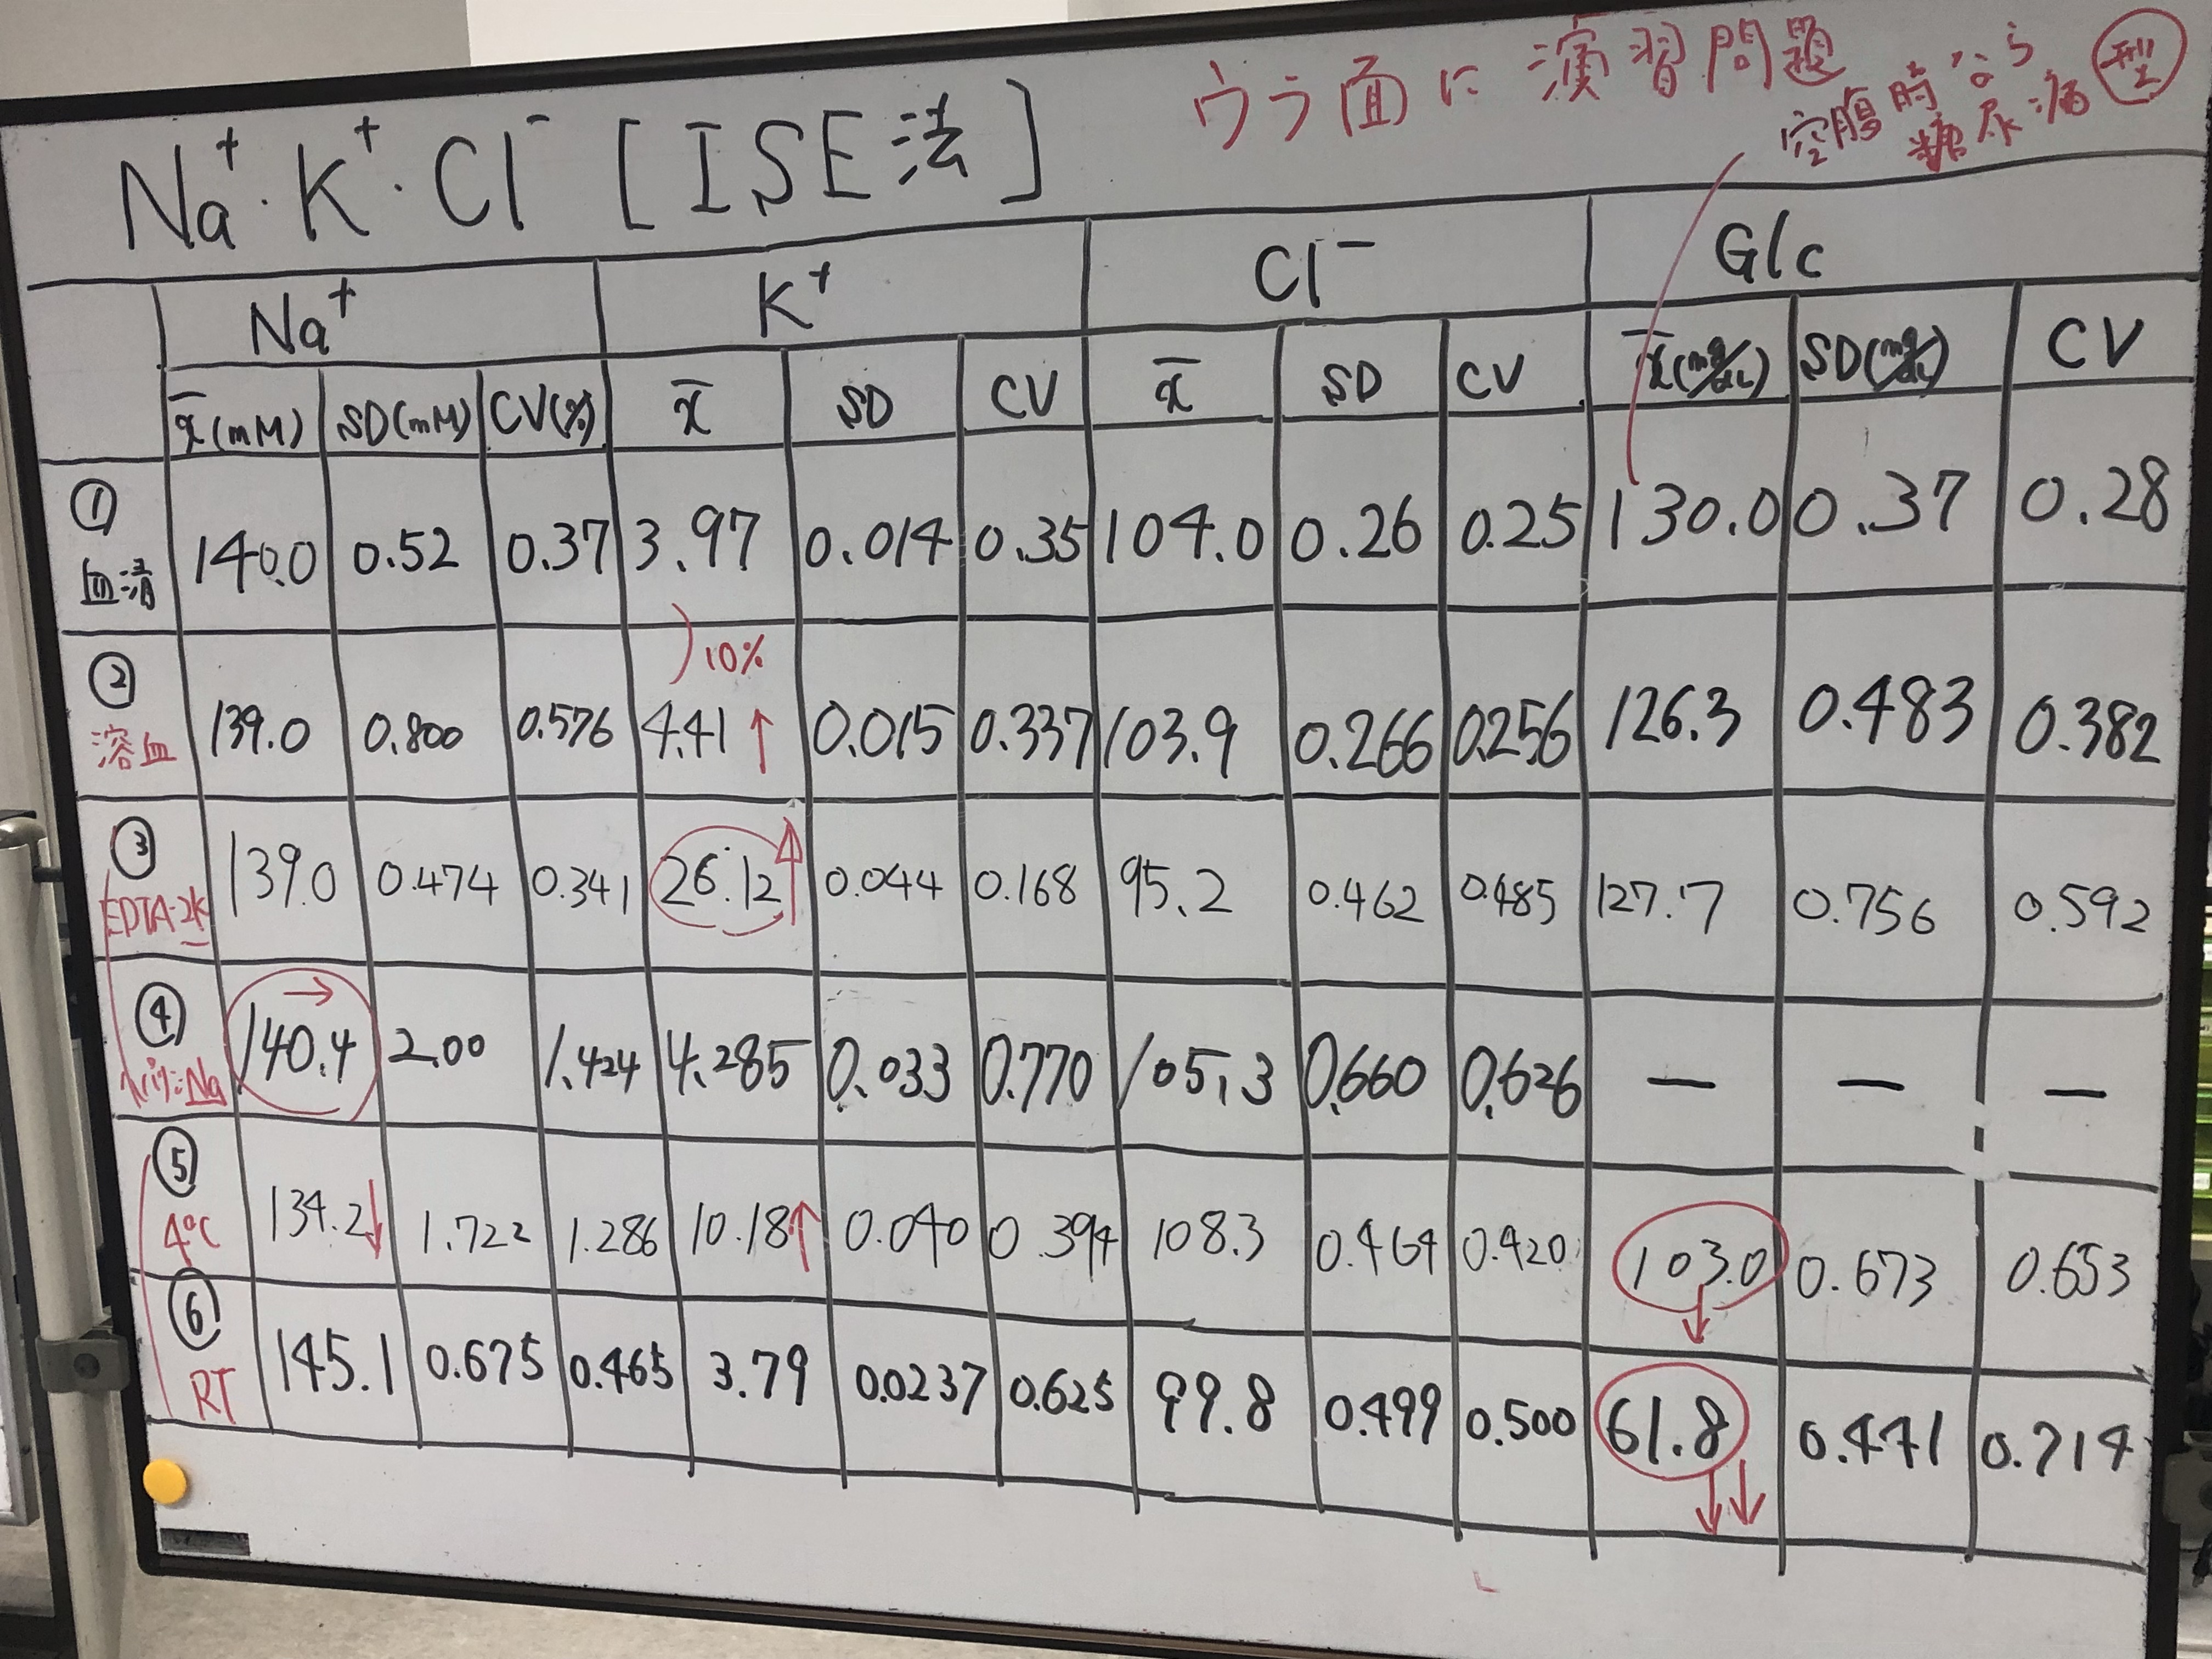 ウラ面に演習問題
空腹時なら
糖尿病型
Na⁺・K⁺・Cl⁻ [ISE法]
Na⁺ K⁺ Cl⁻ Glc
x̄(mM) SD(mM) CV(%) x̄ SD CV x̄ SD CV x̄(mg/dL) SD(mg/dL) CV
① 血清 140.0 0.52 0.37 3.97 0.014 0.35 104.0 0.26 0.25 130.0 0.37 0.28
10%
② 溶血 139.0 0.800 0.576 4.41↑ 0.015 0.337 103.9 0.266 0.256 126.3 0.483 0.382
③ EDTA-2K 139.0 0.474 0.341 26.12↑ 0.044 0.168 95.2 0.462 0.485 127.7 0.756 0.592
④ ヘパリンNa → 140.4 2.00 1.424 4.285 0.033 0.770 105.3 0.660 0.626 — — —
⑤ 4℃ 134.2↓ 1.722 1.286 10.18↑ 0.040 0.394 108.3 0.464 0.420 103.0↓ 0.673 0.653
⑥ RT 145.1 0.675 0.465 3.79 0.0237 0.625 99.8 0.499 0.500 61.8↓↓ 0.441 0.714